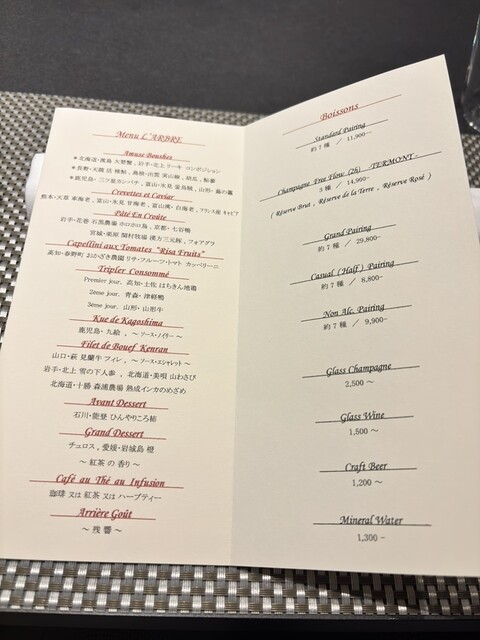 Menu L'ARBRE
Amuse Boushés
＊北海道・真狩 大蟹蟹 , 岩手・北上 リーキ コンポジション
＊長野・天龍 活 稚鮎 , 島根・出雲 富山柚 , 胡瓜 , 鮎蓼
＊鹿児島・三ツ星カンパチ , 富山・氷見 宝島鯖 , 山形・菊の薫
Crevettes et Caviar
熊本・天草 車海老 , 富山・氷見 甘海老 , 富山湾・白海老 , フランス産 キャビア
Pâté En Croûte
岩手・花巻 石黒農場 ホロホロ鳥 , 京都・七谷鴨
宮城・栗原 関村牧場 漢方三元豚 , フォアグラ
Capellini aux Tomates "Risa Fruits"
高知・春野町 おかざき農園 リサ・フルーツ・トマト カッペリーニ
Tripler Consommé
Premier jour. 高知・土佐 はちきん地鶏
2ème jour. 青森・津軽鴨
3ème jour. 山形・山形牛
Kue de Kagoshima
鹿児島・九絵 , ～ ソース・ノイリー ～
Filet de Bouef Kenran
山口・萩 見蘭牛 フィレ , ～ ソース・エシャレット ～
岩手・北上 雪の下人参 , 北海道・美唄 山わさび
北海道・十勝 森浦農場 熟成インカのめざめ
Avant Dessert
石川・能登 ひんやりころ柿
Grand Dessert
チュロス , 愛媛・岩城島 橙
～ 紅茶 の 香り ～
Café au Thé au Infusion
珈琲 又は 紅茶 又は ハーブティー
Arrière Goût
～ 残 響 ～
Boissons
Standard Pairing
約 7 種 ／ 11,900-
Champagne Free Flow (2h) -TERMONT-
3 種 ／ 14,900-
( Réserve Brut , Réserve de la Terre , Réserve Rosé )
Grand Pairing
約 7 種 ／ 29,800-
Casual ( Half ) Pairing
約 7 種 ／ 8,800-
Non Alc. Pairing
約 7 種 ／ 9,900-
Glass Champagne
2,500 ～
Glass Wine
1,500 ～
Craft Beer
1,200 ～
Mineral Water
1,300 -